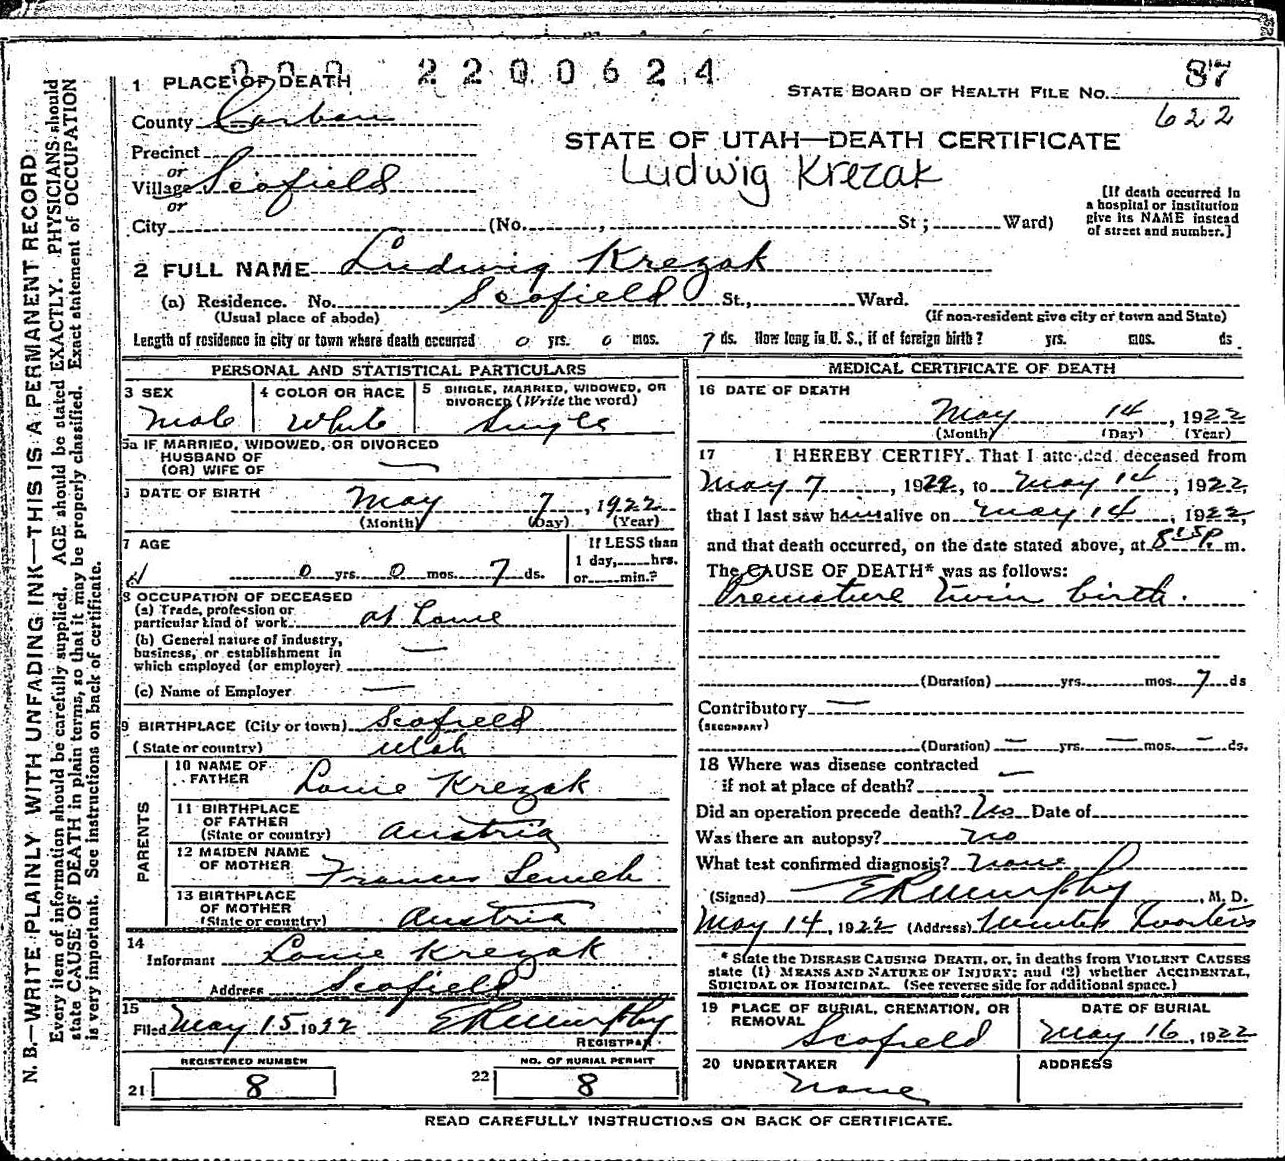 000 2200624
87
1 PLACE OF DEATH
STATE BOARD OF HEALTH FILE NO.
622
County Carbon
STATE OF UTAH—DEATH CERTIFICATE
Precinct
Ludwig Krezak
or
Village Scofield
or
[If death occurred in
a hospital or institution
give its NAME instead
of street and number.]
City (No. , St; Ward)
2 FULL NAME Ludwig Krezak
(a) Residence. No. Scofield St., Ward.
(Usual place of abode) (If non-resident give city or town and State)
Length of residence in city or town where death occurred 0 yrs. 0 mos. 7 ds. How long in U. S., if of foreign birth? yrs. mos. ds.
PERSONAL AND STATISTICAL PARTICULARS
3 SEX Male
4 COLOR OR RACE White
5 SINGLE, MARRIED, WIDOWED, OR
DIVORCED (Write the word)
Single
5a IF MARRIED, WIDOWED, OR DIVORCED
HUSBAND OF
(OR) WIFE OF —
DATE OF BIRTH May 7, 1922
(Month) (Day) (Year)
7 AGE
0 yrs. 0 mos. 7 ds.
If LESS than
1 day, hrs.
or min.?
8 OCCUPATION OF DECEASED
(a) Trade, profession or
particular kind of work at home
(b) General nature of industry,
business, or establishment in
which employed (or employer) —
(c) Name of Employer —
9 BIRTHPLACE (City or town) Scofield
(State or country) Utah
PARENTS
10 NAME OF
FATHER Louie Krezak
11 BIRTHPLACE
OF FATHER
(State or country) Austria
12 MAIDEN NAME
OF MOTHER Frances
13 BIRTHPLACE
OF MOTHER
(State or country) Austria
14
Informant Louie Krezak
Address Scofield
15
Filed May 15 1922 E R Murphy
REGISTRAR
REGISTERED NUMBER
21 8
NO. OF BURIAL PERMIT
22 8
MEDICAL CERTIFICATE OF DEATH
16 DATE OF DEATH
May 14, 1922
(Month) (Day) (Year)
17 I HEREBY CERTIFY. That I attended deceased from
May 7, 1922, to May 14, 1922,
that I last saw him alive on May 14, 1922,
and that death occurred, on the date stated above, at 8 15 P. m.
The CAUSE OF DEATH* was as follows:
Premature twin birth.
(Duration) yrs. mos. 7 ds
Contributory —
(SECONDARY)
(Duration) — yrs. — mos. — ds.
18 Where was disease contracted
if not at place of death? —
Did an operation precede death? No Date of
Was there an autopsy? no
What test confirmed diagnosis? none
(Signed) E R Murphy, M. D.
May 14, 1922 (Address) Winter Quarters
* State the DISEASE CAUSING DEATH, or, in deaths from VIOLENT CAUSES
state (1) MEANS AND NATURE OF INJURY; and (2) whether ACCIDENTAL,
SUICIDAL OR HOMICIDAL. (See reverse side for additional space.)
19 PLACE OF BURIAL, CREMATION, OR
REMOVAL
Scofield
DATE OF BURIAL
May 16, 1922
20 UNDERTAKER
none
ADDRESS
READ CAREFULLY INSTRUCTIONS ON BACK OF CERTIFICATE.
N. B.—WRITE PLAINLY WITH UNFADING INK—THIS IS A PERMANENT RECORD
Every item of information should be carefully supplied. AGE should be stated EXACTLY. PHYSICIANS should
state CAUSE OF DEATH in plain terms, so that it may be properly classified. Exact statement of OCCUPATION
is very important. See instructions on back of certificate.